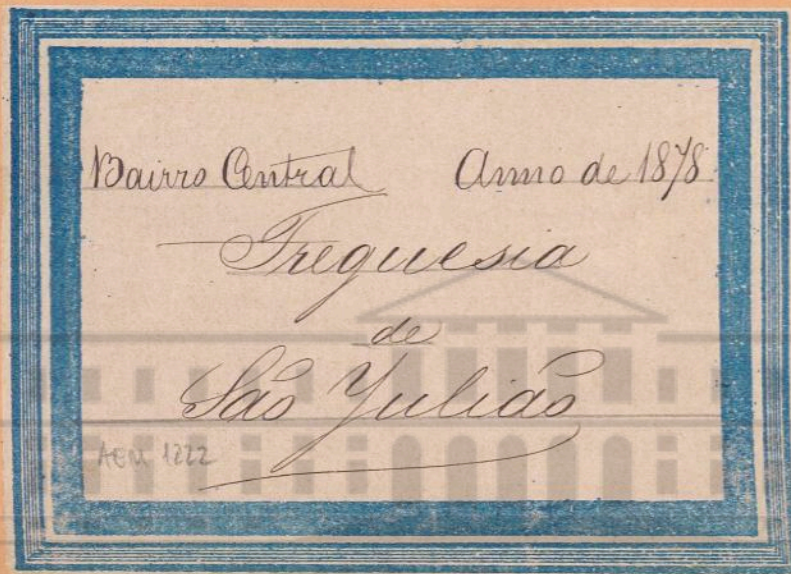 Bairro Central Anno de 1878
Freguesia
de
São Julião
AEM 1222